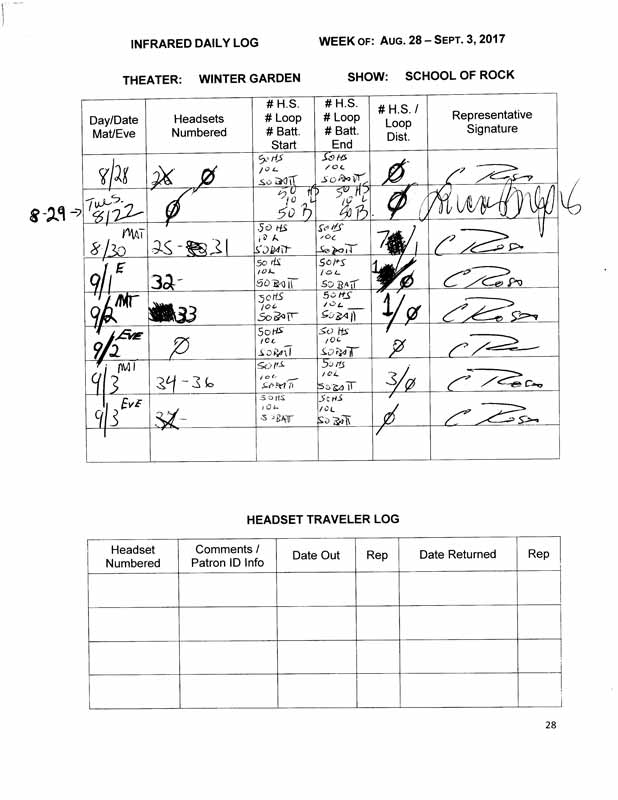 INFRARED DAILY LOG WEEK OF: AUG. 28 – SEPT. 3, 2017
THEATER: WINTER GARDEN SHOW: SCHOOL OF ROCK
Day/Date Mat/Eve Headsets Numbered # H.S. # Loop # Batt. Start # H.S. # Loop # Batt. End # H.S. / Loop Dist. Representative Signature
8/28 Ø 50HS 10L 50BATT 50HS 10L 50BATT Ø C Rosa
8-29 → TUES. 8/22 Ø 50 HS 10 L 50 B 50 HS 10 L 50 B. Ø
8/30 MAT 25- 31 50HS 10L 50BATT 50HS 10L 50BATT 7 /1 C Rosa
9/1 E 32- 50HS 10L 50BATT 50HS 10L 50BATT 1/Ø C Rosa
9/2 MAT 33 50HS 10L 50BATT 50HS 10L 50BATT 1/Ø C Rosa
9/2 EVE Ø 50HS 10L 50BATT 50 HS 10L 50BATT Ø C Rosa
9/3 MAT 34-36 50HS 10L 50BATT 50HS 10L 50BATT 3/Ø C Rosa
9/3 EVE 37- 50HS 10L 50BAT 50HS 10L 50BATT Ø C Rosa
HEADSET TRAVELER LOG
Headset Numbered Comments / Patron ID Info Date Out Rep Date Returned Rep
28